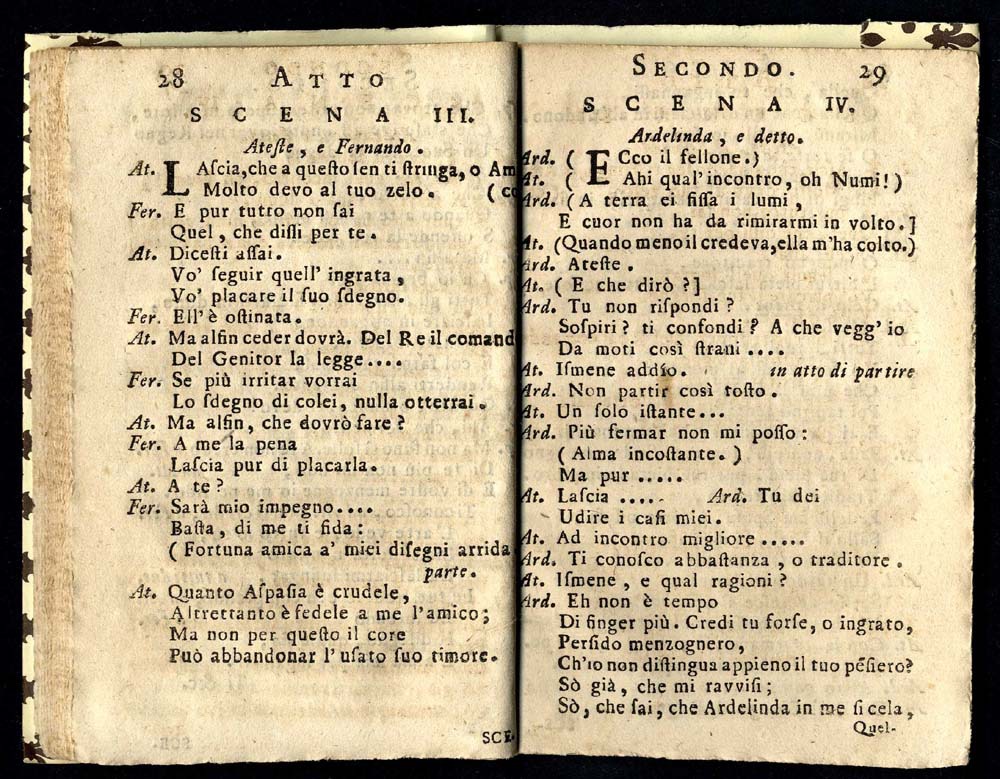 28 ATTO
SCENA III.
Ateſte, e Fernando.
At. LAſcia, che a queſto ſen ti ſtringa, o Am
Molto devo al tuo zelo. (co
Fer. E pur tutto non ſai
Quel, che diſſi per te.
At. Diceſti aſſai.
Vo' ſeguir quell' ingrata,
Vo' placare il ſuo ſdegno.
Fer. Ell' è oſtinata.
At. Ma alfin ceder dovrà. Del Re il comand
Del Genitor la legge....
Fer. Se più irritar vorrai
Lo ſdegno di colei, nulla otterrai.
At. Ma alfin, che dovrò fare?
Fer. A me la pena
Laſcia pur di placarla.
At. A te?
Fer. Sarà mio impegno....
Baſta, di me ti fida:
(Fortuna amica a' miei diſegni arrida
parte.
At. Quanto Aſpaſia è crudele,
Altrettanto è fedele a me l'amico;
Ma non per queſto il core
Può abbandonar l'uſato ſuo timore.
SCE-
SECONDO. 29
SCENA IV.
Ardelinda, e detto.
Ard. (ECco il fellone.)
At. (Ahi qual'incontro, oh Numi!)
Ard. (A terra ei fiſſa i lumi,
E cuor non ha da rimirarmi in volto.]
At. (Quando meno il credeva, ella m'ha colto.)
Ard. Ateſte.
At. (E che dirò?]
Ard. Tu non riſpondi?
Soſpiri? ti confondi? A che vegg'io
Da moti così ſtrani....
At. Iſmene addio. in atto di partire
Ard. Non partir così toſto.
At. Un ſolo iſtante...
Ard. Più fermar non mi poſſo:
(Alma incoſtante.)
Ma pur.....
At. Laſcia..... Ard. Tu dei
Udire i caſi miei.
At. Ad incontro migliore.....
Ard. Ti conoſco abbaſtanza, o traditore.
At. Iſmene, e qual ragioni?
Ard. Eh non è tempo
Di finger più. Credi tu forſe, o ingrato,
Perfido menzognero,
Ch'io non diſtingua appieno il tuo pẽſiero?
Sò già, che mi ravviſi;
Sò, che ſai, che Ardelinda in me ſi cela,
Quel-